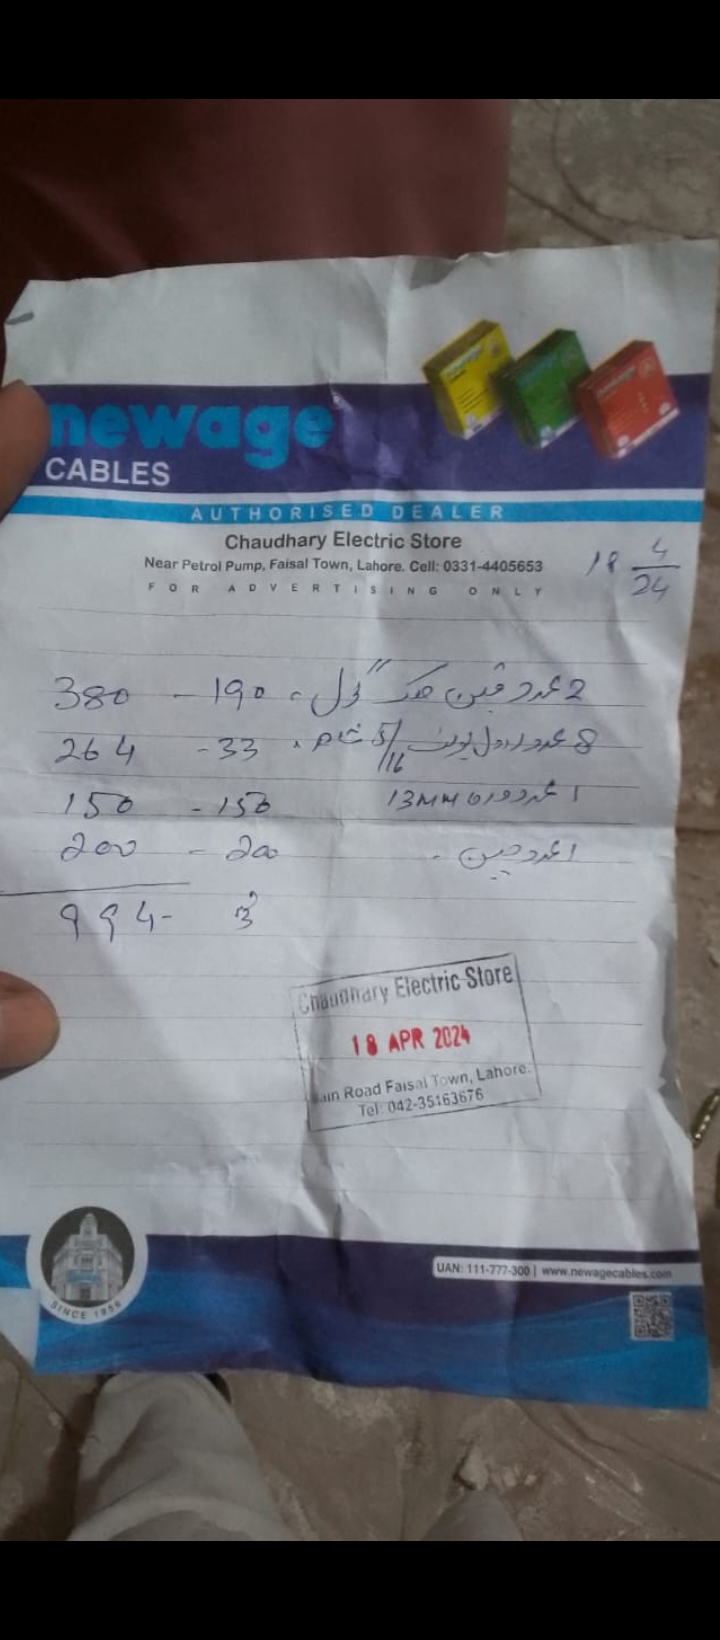 newage
CABLES
AUTHORISED DEALER
Chaudhary Electric Store
Near Petrol Pump, Faisal Town, Lahore. Cell: 0331-4405653
FOR ADVERTISING ONLY
18 4/24
2 عدد فین ھک گول 190 - 380
8 عدد راول بولٹ 5/16 33 - 264
1 عدد ورما 13MM 150 - 150
1 عدد 200 - 200
994-
Chaudhary Electric Store
18 APR 2024
ain Road Faisal Town, Lahore.
Tel: 042-35163676
UAN: 111-777-300 | www.newagecables.com
SINCE 1956